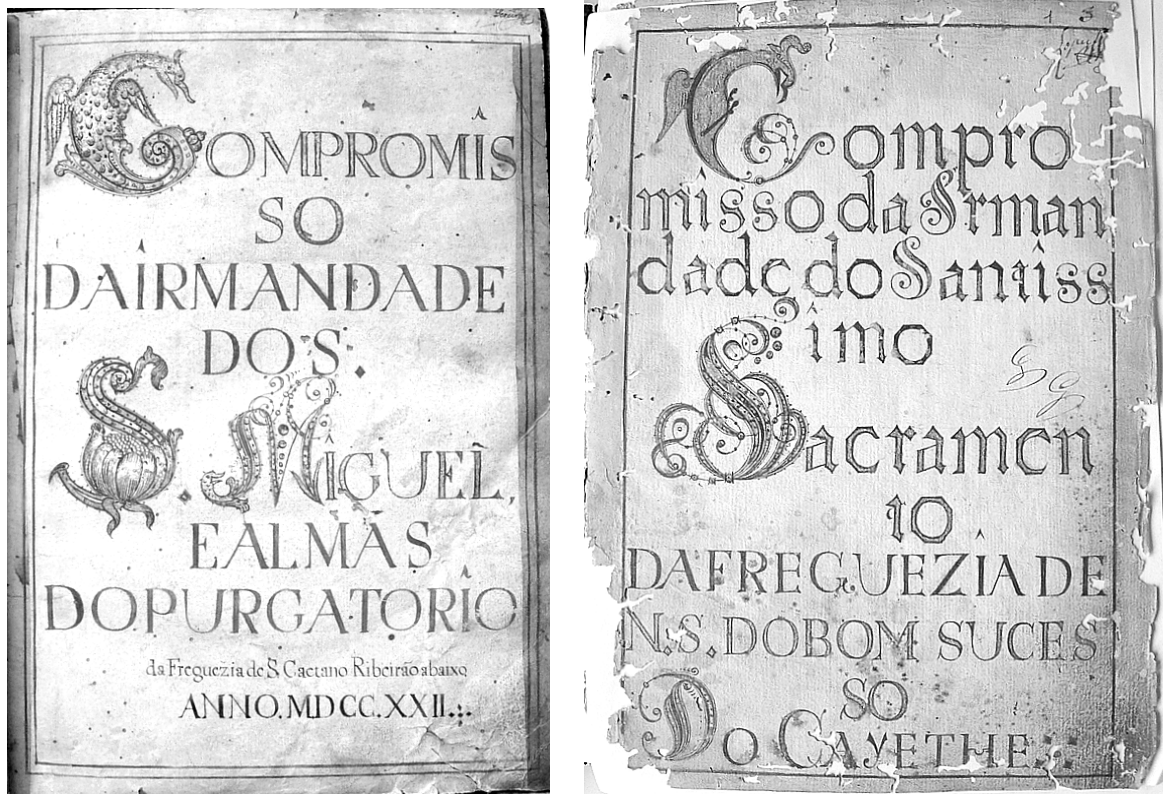 COMPROMIS
SO
DA IRMANDADE
DO S.
S. MIGUEL,
E ALMAS
DO PURGATORIO
da Freguezia de S. Caetano Ribeirão abaixo
ANNO. MDCC. XXII.
Compro
misso da Irman
dade do Santiss
imo
Sacramen
to
DA FREGUEZIA DE
N. S. DO BOM SUCES
SO
DO CAYETHE